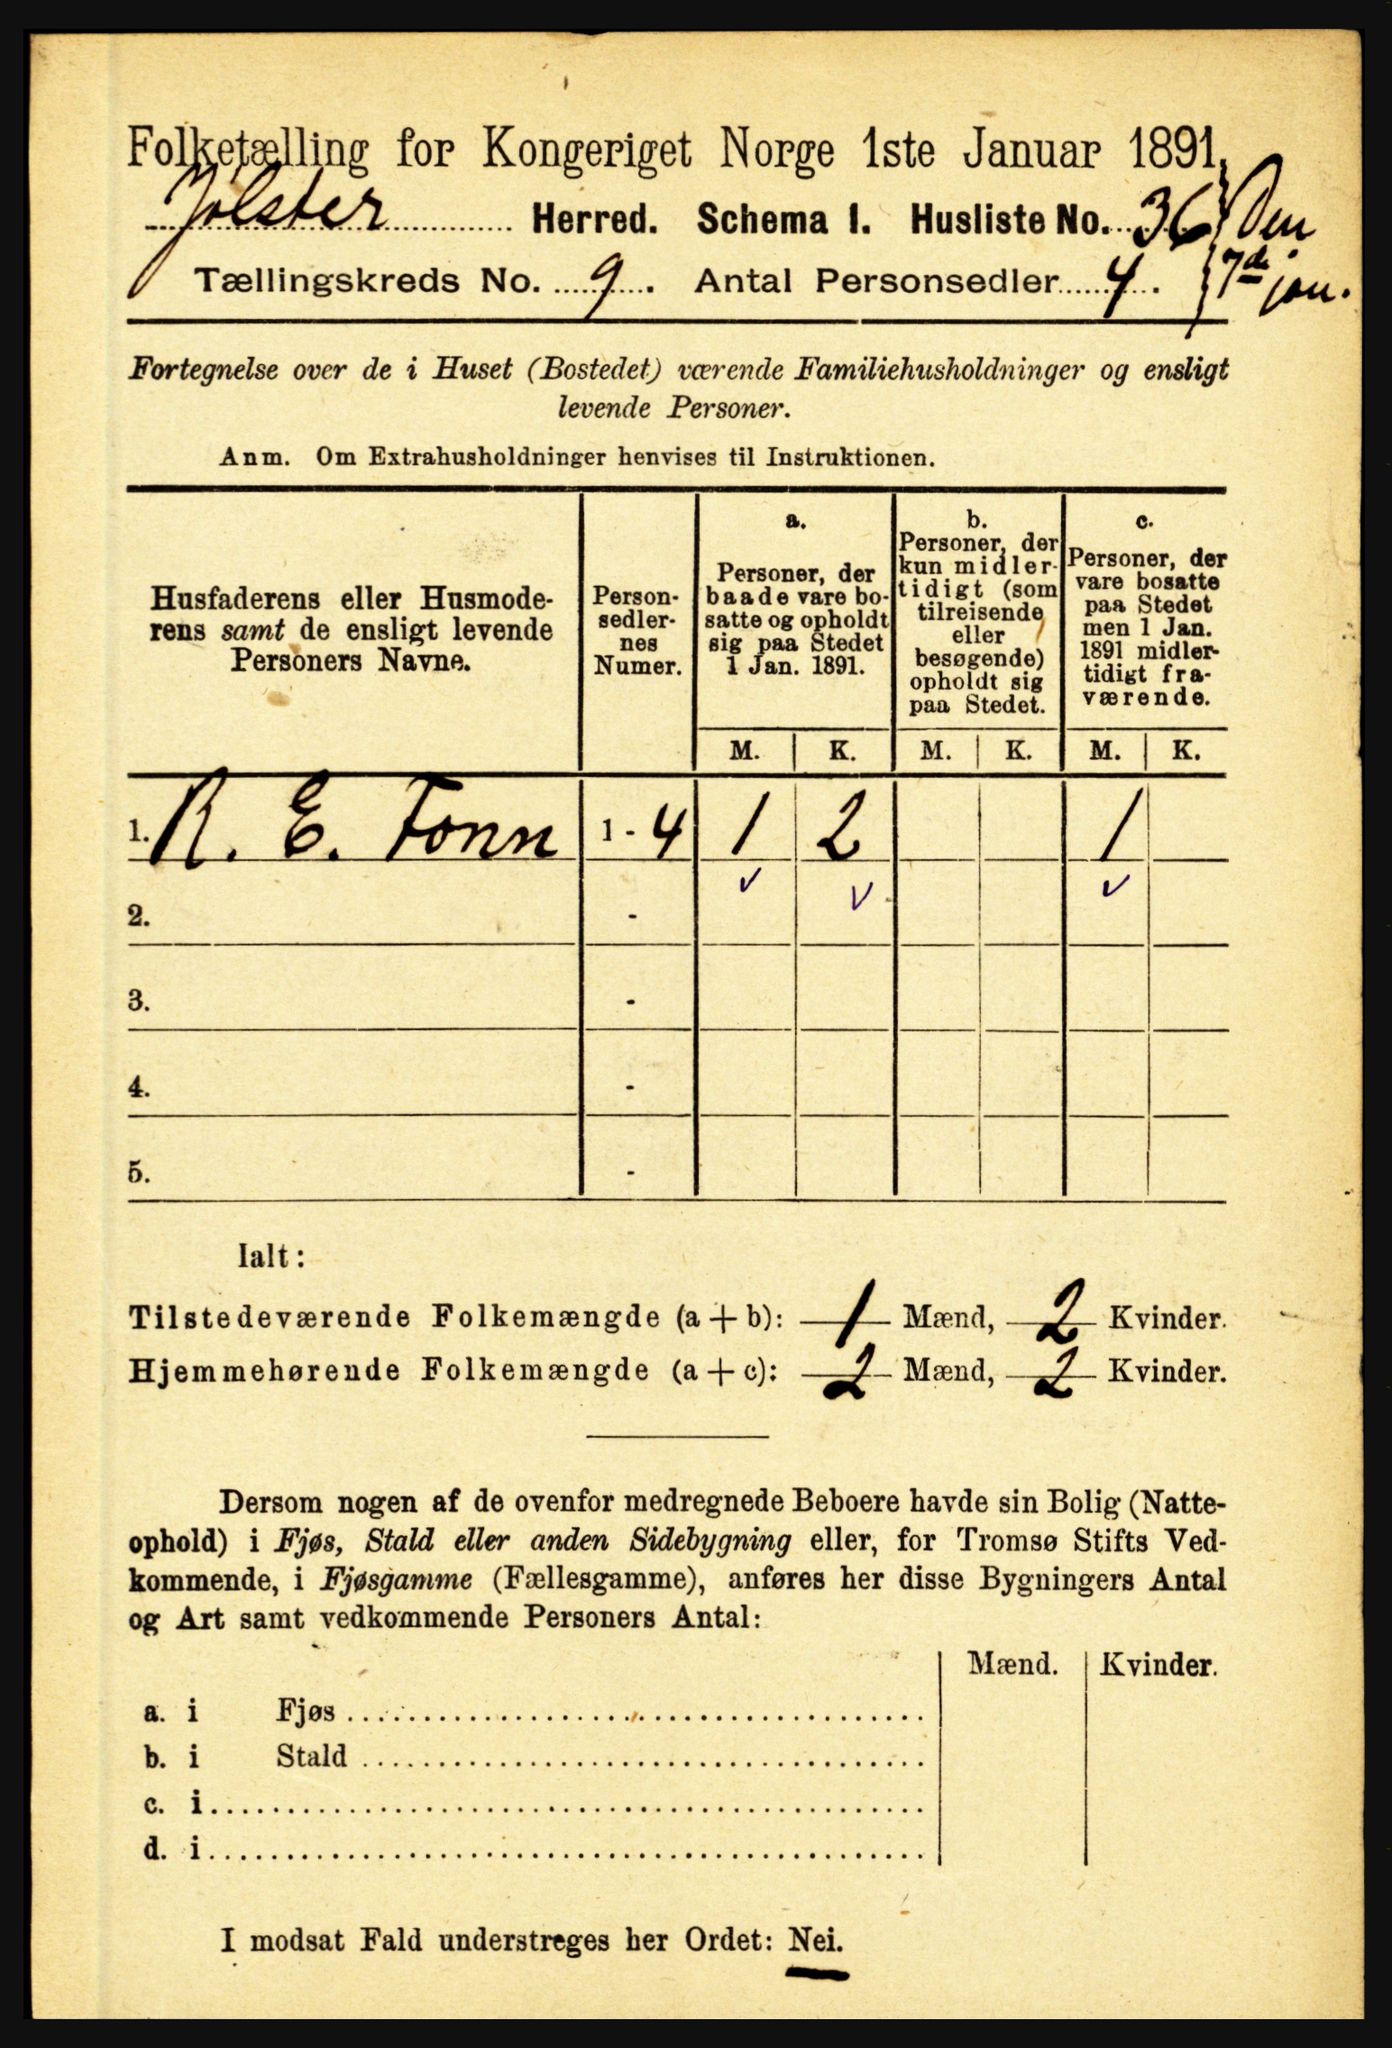 Folketælling for Kongeriget Norge 1ste Januar 1891.
Jølster Herred. Schema I. Husliste No. 36 Den
Tællingskreds No. 9. Antal Personsedler 4. 7de jan.
Fortegnelse over de i Huset (Bostedet) værende Familiehusholdninger og ensligt
levende Personer.
Anm. Om Extrahusholdninger henvises til Instruktionen.
Husfaderens eller Husmode-
rens samt de ensligt levende
Personers Navne.
Person-
sedler-
nes
Numer.
a.
Personer, der
baade vare bo-
satte og opholdt
sig paa Stedet
1 Jan. 1891.
b.
Personer, der
kun midler-
tidigt (som
tilreisende
eller
besøgende)
opholdt sig
paa Stedet.
c.
Personer, der
vare bosatte
paa Stedet
men 1 Jan.
1891 midler-
tidigt fra-
værende.
M. K. M. K. M. K.
1. R. E. Fonn 1 - 4 1 2 1
2. -
3. -
4. -
5. -
Ialt:
Tilstedeværende Folkemængde (a + b): 1 Mænd, 2 Kvinder.
Hjemmehørende Folkemængde (a + c): 2 Mænd, 2 Kvinder.
Dersom nogen af de ovenfor medregnede Beboere havde sin Bolig (Natte-
ophold) i Fjøs, Stald eller anden Sidebygning eller, for Tromsø Stifts Ved-
kommende, i Fjøsgamme (Fællesgamme), anføres her disse Bygningers Antal
og Art samt vedkommende Personers Antal:
Mænd. Kvinder.
a. i Fjøs
b. i Stald
c. i
d. i
I modsat Fald understreges her Ordet: Nei.